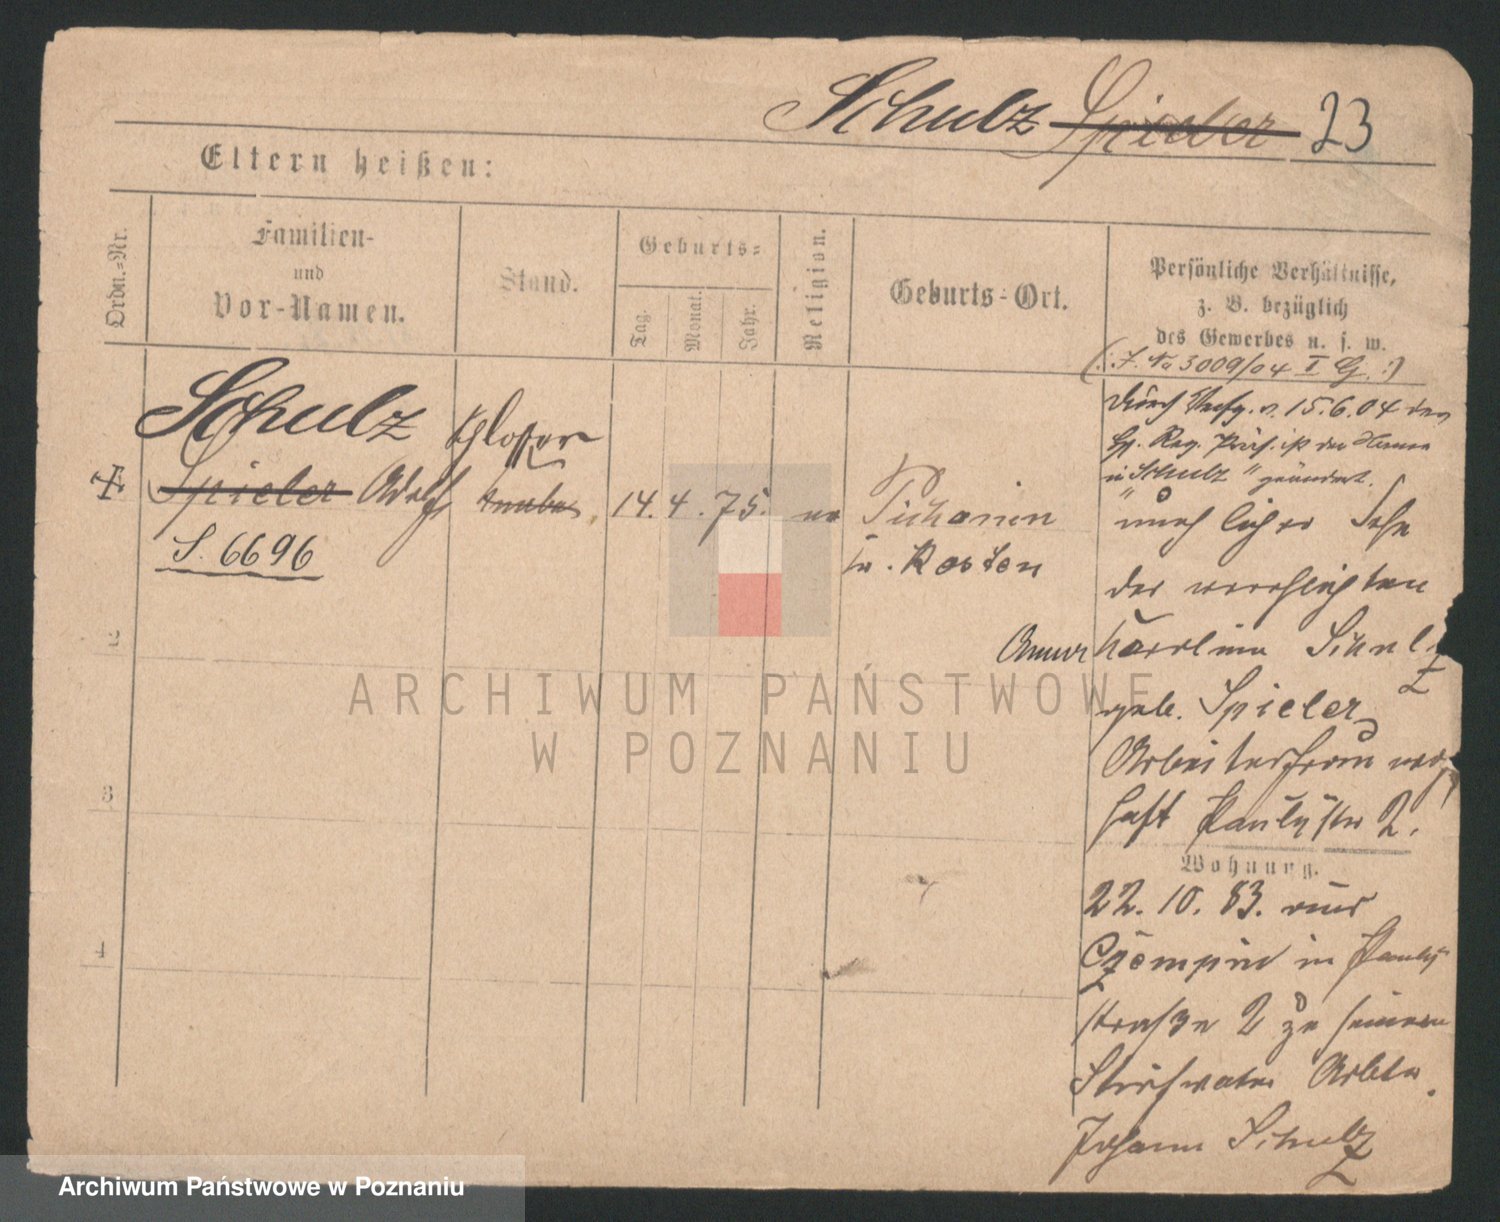 Schulz Spieler 23
Eltern heißen:
Ordn.-Nr.
Familien-
und
Vor-Namen.
Stand.
Geburts-
Tag.
Monat.
Jahr.
Religion.
Geburts-Ort.
Persönliche Verhältnisse,
z. B. bezüglich
des Gewerbes u. s. w.
(J. No 3009/04 I G.)
Schulz Schlosser
Spieler Adolf Knabe 14. 4. 75. ev
S. 6696
Kr. Kosten
durch Verfg. v. 15.6.04 des
H. Reg. Präs. ist der Name
in "Schulz" geändert.
unehlicher Sohn
der verehlichten
Anna Karoline Schulz
geb. Spieler
Arbeiterfrau wohn
haft Paulystr 2.
2
3
4
Wohnung.
22. 10. 83. aus
Czempin in Pauly
straße 2 zu seinem
Stiefvater Arbeiter
Johann Schulz
ARCHIWUM PAŃSTWOWE
W POZNANIU
Archiwum Państwowe w Poznaniu